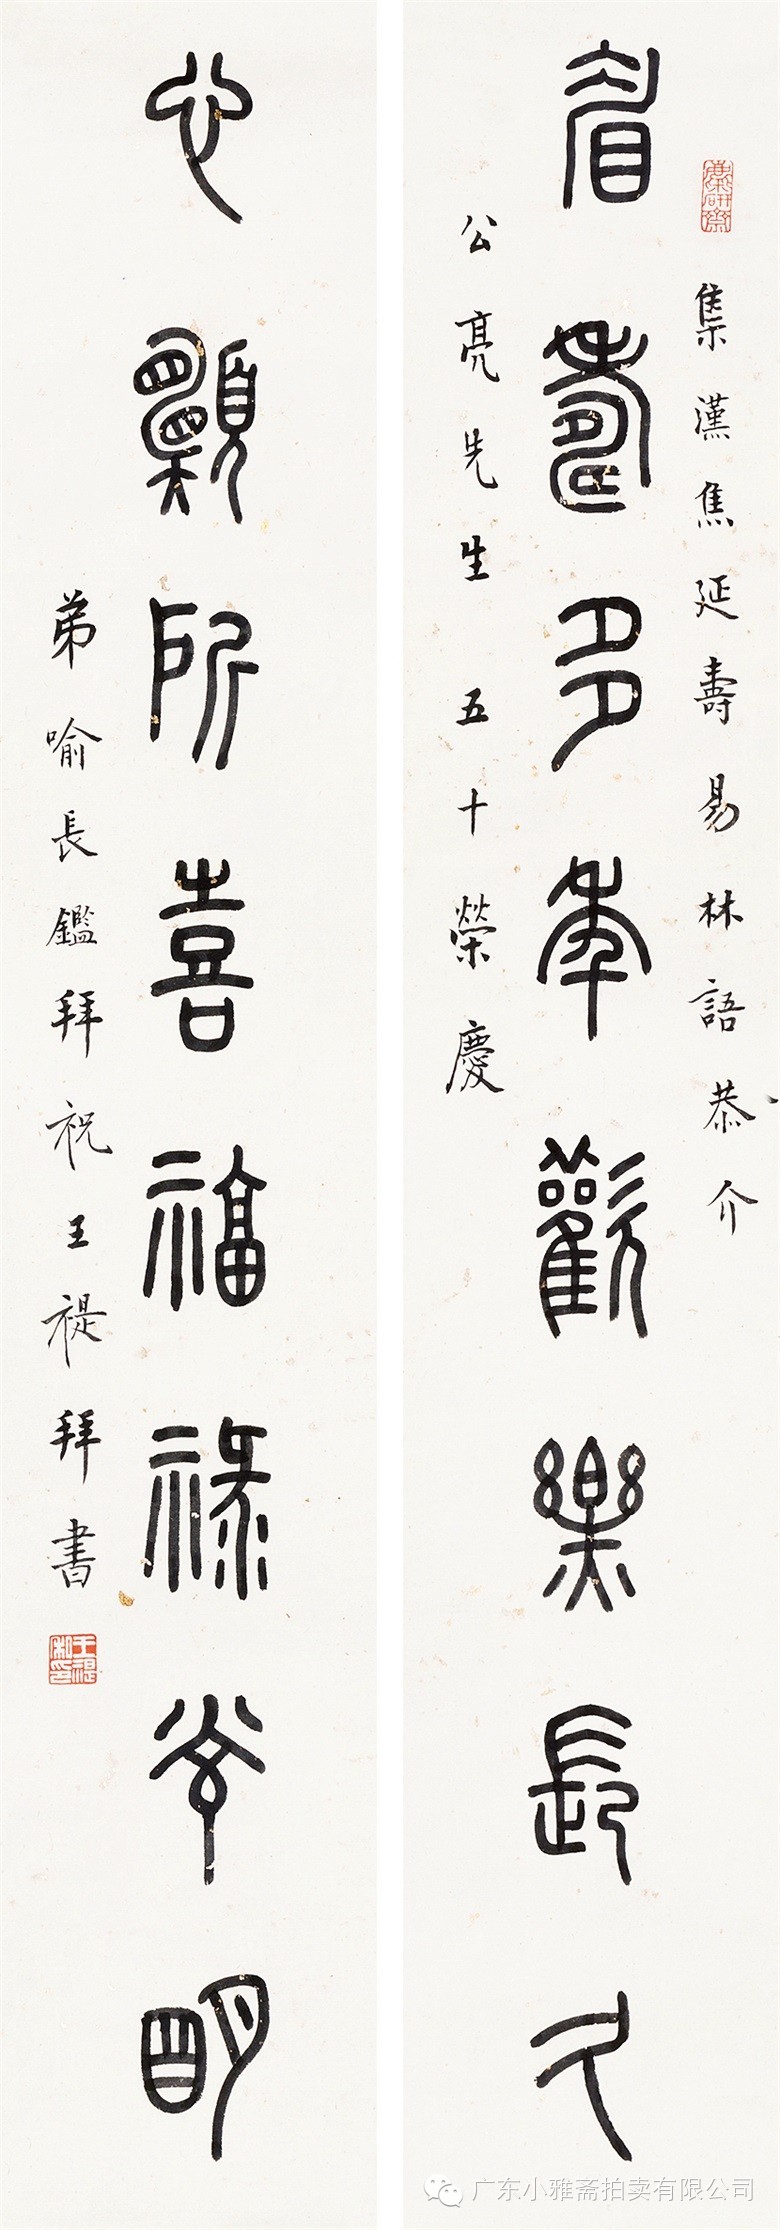 麋研齋
集漢焦延壽易林語恭介
眉壽多年歡樂長久
公亮先生 五十榮慶
心願所喜福祿光明
弟喻長鑑拜祝王禔拜書
王禔私印
广东小雅斋拍卖有限公司